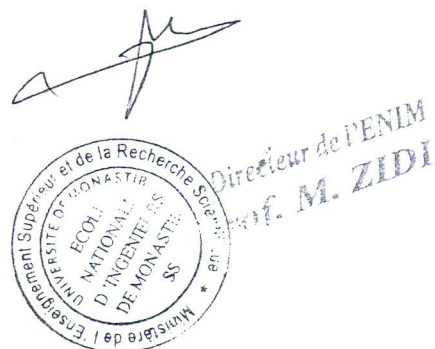 Directeur de l'ENIM
Prof. M. ZIDI
Ministère de l'Enseignement Supérieur et de la Recherche Scientifique *
UNIVERSITE DE MONASTIR
ECOLE
NATIONALE
D'INGENIEURS
DE MONASTIR
SS